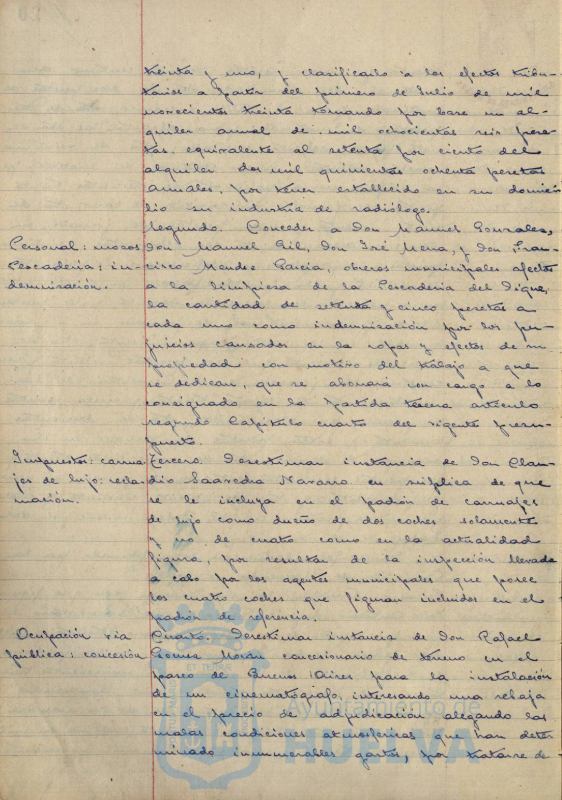 treinta y uno, y clasificarlo a los efectos tribu-
tarios a partir del primero de Julio de mil
novecientos treinta tomando por base un al-
quiler anual de mil ochocientas seis pese-
tas equivalente al setenta por ciento del
alquiler dos mil quinientas ochenta pesetas
anuales, por tener establecido en su domici-
lio su industria de radiólogo.
Segundo. Conceder a Don Manuel Gonzales,
Personal: mozos
Pescadería; in-
demnización.
Don Manuel Gil, Don José Mena, y Don Fran-
cisco Mendez García, obreros municipales afectos
a la limpiesa de la Pescaderia del Dique,
la cantidad de setenta y cinco pesetas a
cada uno como indemnización por los per-
juicios causados en la ropas y efectos de su
propiedad con motivo del trabajo a que
se dedican, que se abonará con cargo a lo
consignado en la partida tercera articulo
segundo Capítulo cuarto del vigente presu-
puesto.
Impuestos: carrua-
jes de lujo: recla-
mación.
Tercero. Desestimar instancia de Don Clau-
dio Saavedra Navarro en súplica de que
se le incluya en el padrón de carruajes
de lujo como dueño de dos coches solamente
y no de cuatro como en la actualidad
figura, por resultar de la inspección llevada
a cabo por los agentes municipales que posee
los cuatro coches que figuran incluidos en el
padrón de referencia.
Ocupación via
pública: concesión
Cuarto. Desestimar instancia de Don Rafael
Gomez Morán concesionario de terreno en el
paseo de Buenos Aires para la instalación
de un cinematógrafo, interesando una rebaja
en el precio de adjudicación alegando las
malas condiciones atmosfericas que han deter-
minado innumerables gastos, por tratarse de
ET TERRÆ
Ayuntamiento de
HUELVA